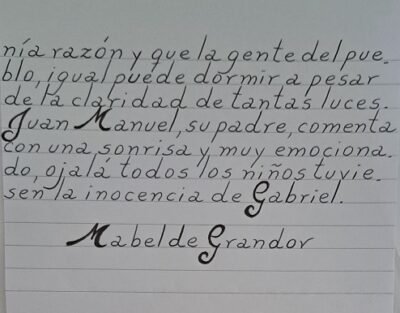 nía razón y que la gente del pue-
blo, igual puede dormir a pesar
de la claridad de tantas luces.
Juan Manuel, su padre, comenta
con una sonrisa y muy emociona-
do, ojalá todos los niños tuvie-
sen la inocencia de Gabriel.
Mabel de Grandor